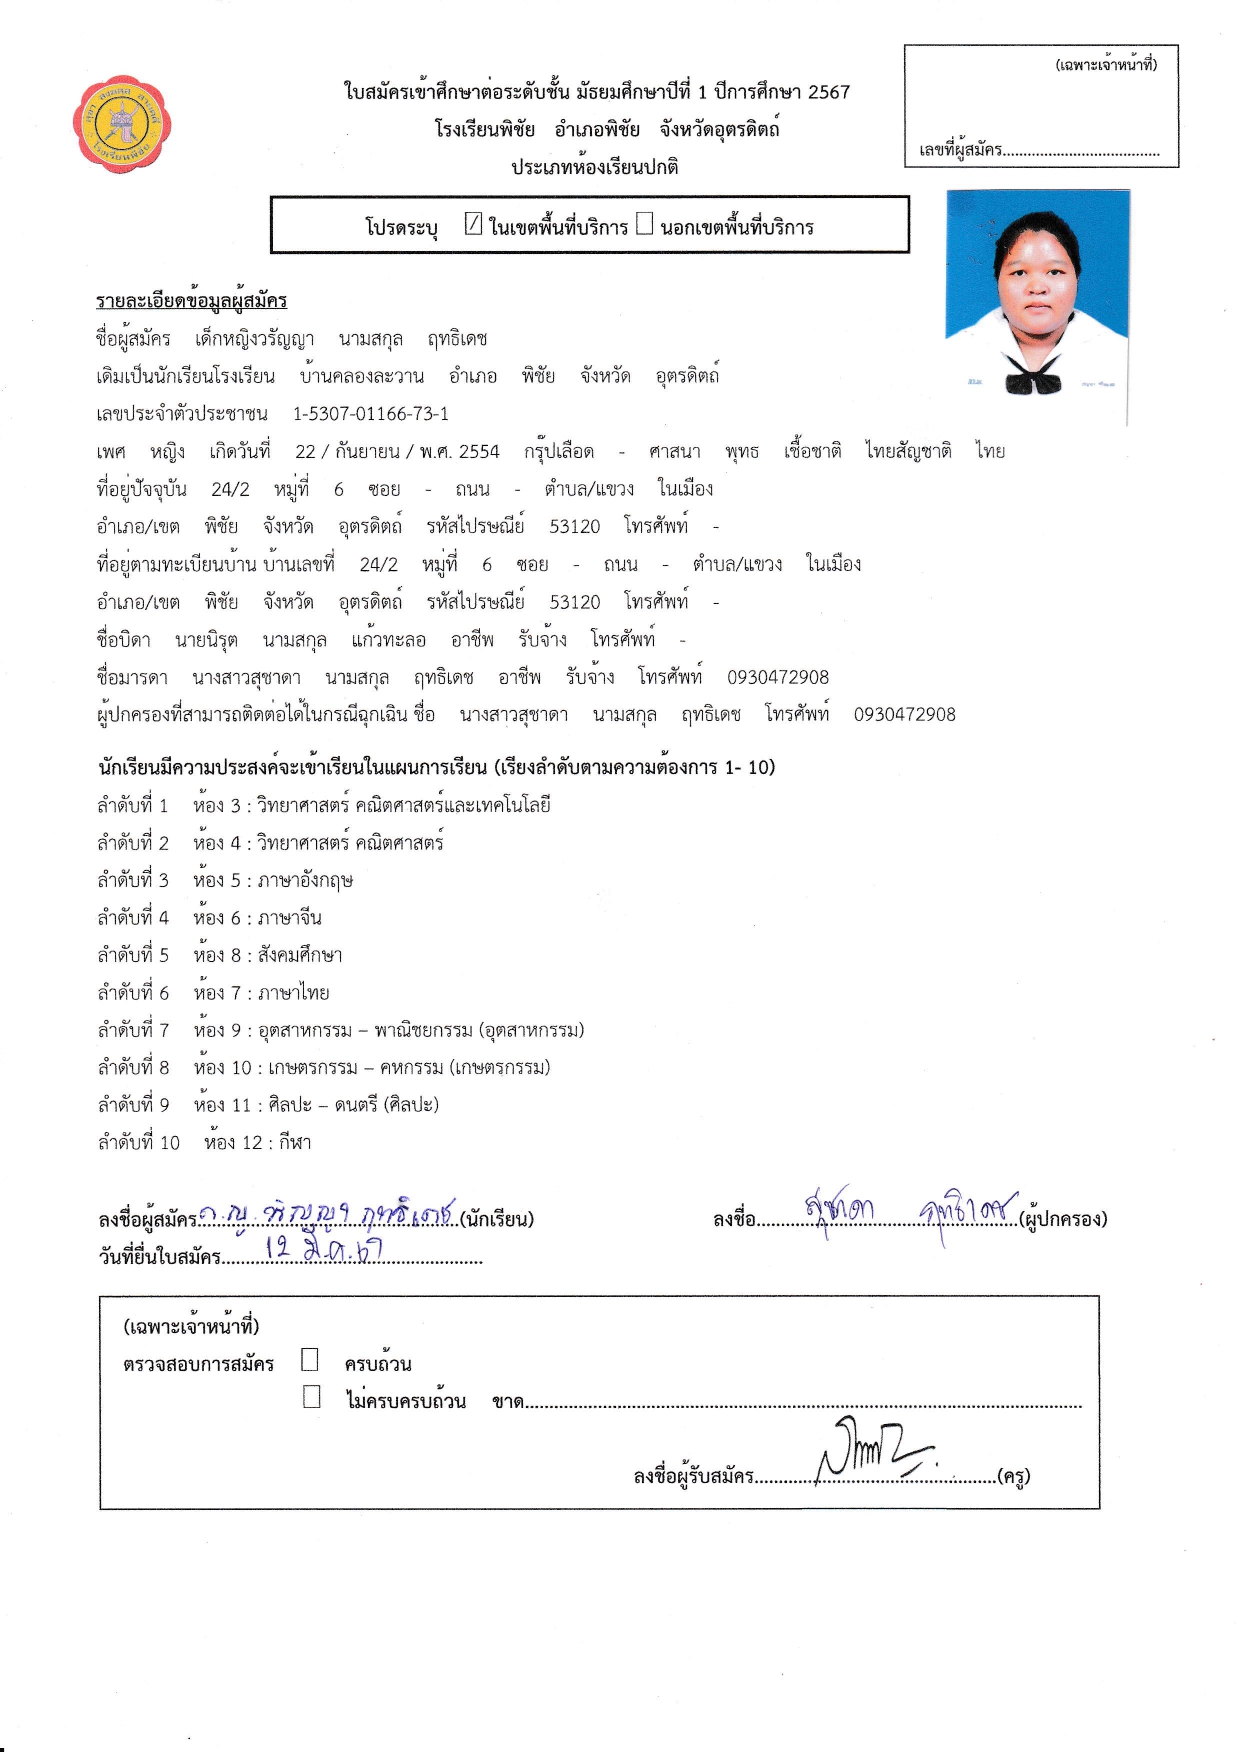 (เฉพาะเจ้าหน้าที่)
เลขที่ผู้สมัคร......................................
ใบสมัครเข้าศึกษาต่อระดับชั้น มัธยมศึกษาปีที่ 1 ปีการศึกษา 2567
โรงเรียนพิชัย อำเภอพิชัย จังหวัดอุตรดิตถ์
ประเภทห้องเรียนปกติ
โปรดระบุ ☑ ในเขตพื้นที่บริการ ☐ นอกเขตพื้นที่บริการ
รายละเอียดข้อมูลผู้สมัคร
ชื่อผู้สมัคร เด็กหญิงวรัญญา นามสกุล ฤทธิเดช
เดิมเป็นนักเรียนโรงเรียน บ้านคลองละวาน อำเภอ พิชัย จังหวัด อุตรดิตถ์
เลขประจำตัวประชาชน 1-5307-01166-73-1
เพศ หญิง เกิดวันที่ 22 / กันยายน / พ.ศ. 2554 กรุ๊ปเลือด - ศาสนา พุทธ เชื้อชาติ ไทยสัญชาติ ไทย
ที่อยู่ปัจจุบัน 24/2 หมู่ที่ 6 ซอย - ถนน - ตำบล/แขวง ในเมือง
อำเภอ/เขต พิชัย จังหวัด อุตรดิตถ์ รหัสไปรษณีย์ 53120 โทรศัพท์ -
ที่อยู่ตามทะเบียนบ้าน บ้านเลขที่ 24/2 หมู่ที่ 6 ซอย - ถนน - ตำบล/แขวง ในเมือง
อำเภอ/เขต พิชัย จังหวัด อุตรดิตถ์ รหัสไปรษณีย์ 53120 โทรศัพท์ -
ชื่อบิดา นายนิรุต นามสกุล แก้วทะลอ อาชีพ รับจ้าง โทรศัพท์ -
ชื่อมารดา นางสาวสุชาดา นามสกุล ฤทธิเดช อาชีพ รับจ้าง โทรศัพท์ 0930472908
ผู้ปกครองที่สามารถติดต่อได้ในกรณีฉุกเฉิน ชื่อ นางสาวสุชาดา นามสกุล ฤทธิเดช โทรศัพท์ 0930472908
นักเรียนมีความประสงค์จะเข้าเรียนในแผนการเรียน (เรียงลำดับตามความต้องการ 1- 10)
ลำดับที่ 1 ห้อง 3 : วิทยาศาสตร์ คณิตศาสตร์และเทคโนโลยี
ลำดับที่ 2 ห้อง 4 : วิทยาศาสตร์ คณิตศาสตร์
ลำดับที่ 3 ห้อง 5 : ภาษาอังกฤษ
ลำดับที่ 4 ห้อง 6 : ภาษาจีน
ลำดับที่ 5 ห้อง 8 : สังคมศึกษา
ลำดับที่ 6 ห้อง 7 : ภาษาไทย
ลำดับที่ 7 ห้อง 9 : อุตสาหกรรม – พาณิชยกรรม (อุตสาหกรรม)
ลำดับที่ 8 ห้อง 10 : เกษตรกรรม – คหกรรม (เกษตรกรรม)
ลำดับที่ 9 ห้อง 11 : ศิลปะ – ดนตรี (ศิลปะ)
ลำดับที่ 10 ห้อง 12 : กีฬา
ลงชื่อผู้สมัคร ด.ญ. วรัญญา ฤทธิเดช (นักเรียน) ลงชื่อ สุชาดา ฤทธิเดช (ผู้ปกครอง)
วันที่ยื่นใบสมัคร 12 มี.ค. 67
(เฉพาะเจ้าหน้าที่)
ตรวจสอบการสมัคร ☐ ครบถ้วน
☐ ไม่ครบครบถ้วน ขาด..................................................
ลงชื่อผู้รับสมัคร..................................................(ครู)